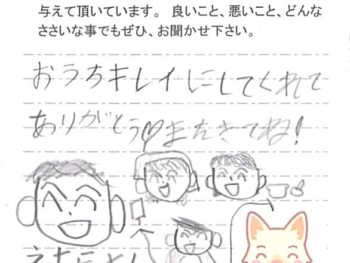 与えて頂いています。 良いこと、悪いこと、どんな
ささいな事でもぜひ、お聞かせ下さい。
おうちキレイにしてくれて
ありがとう♡またきてね!